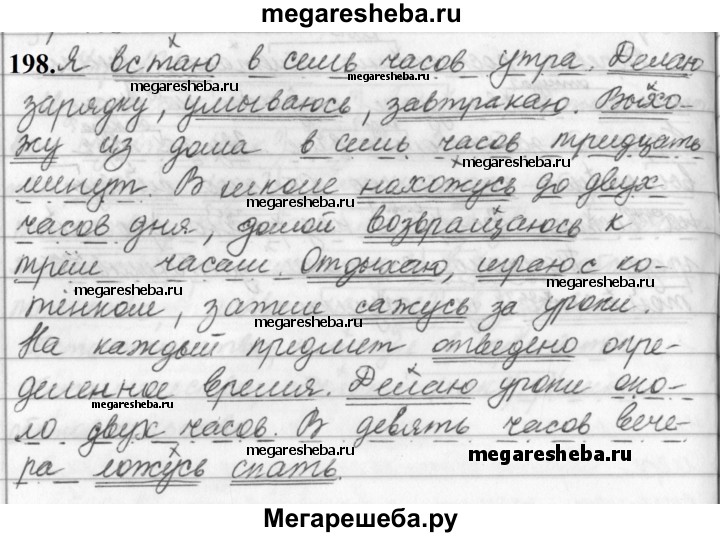 megaresheba.ru
198. Я встаю в семь часов утра. Делаю
megaresheba.ru megaresheba.ru
зарядку, умываюсь, завтракаю. Выхо-
жу из дома в семь часов тридцать
megaresheba.ru
минут. В школе нахожусь до двух
megaresheba.ru
часов дня, домой возвращаюсь к
трём часам. Отдыхаю, играю с ко-
megaresheba.ru megaresheba.ru
тёнком, затем сажусь за уроки.
megaresheba.ru
На каждый предмет отведено опре-
деленное время. Делаю уроки око-
megaresheba.ru
ло двух часов. В девять часов вече-
ра ложусь спать.
megaresheba.ru
Мегарешеба.ру